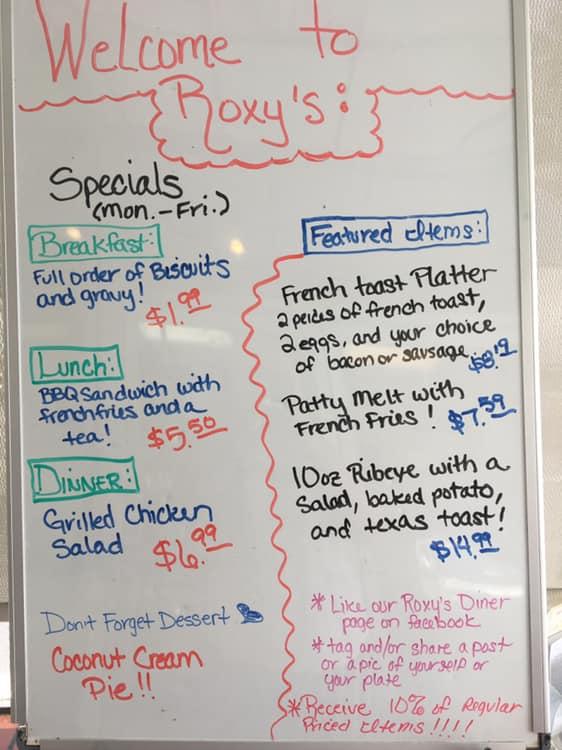 Welcome to
Roxy's:
Specials
(Mon.-Fri.)
Breakfast:
Full order of Biscuits
and gravy!
$1.99
Lunch:
BBQ Sandwich with
french fries and a
tea!
$5.50
DINNER:
Grilled Chicken
Salad
$6.99
Don't Forget Dessert
Coconut Cream
Pie!!
Featured Items:
French toast Platter
2 peices of french toast,
2 eggs, and your choice
of bacon or sausage
Patty Melt with
French Fries!
$7.59
10oz Ribeye with a
Salad, baked potato,
and texas toast!
$14.99
* Like our Roxy's Diner
page on facebook
* tag and/or share a post
or a pic of yourself or
your plate
* Receive 10% of Regular
Priced Items!!!!